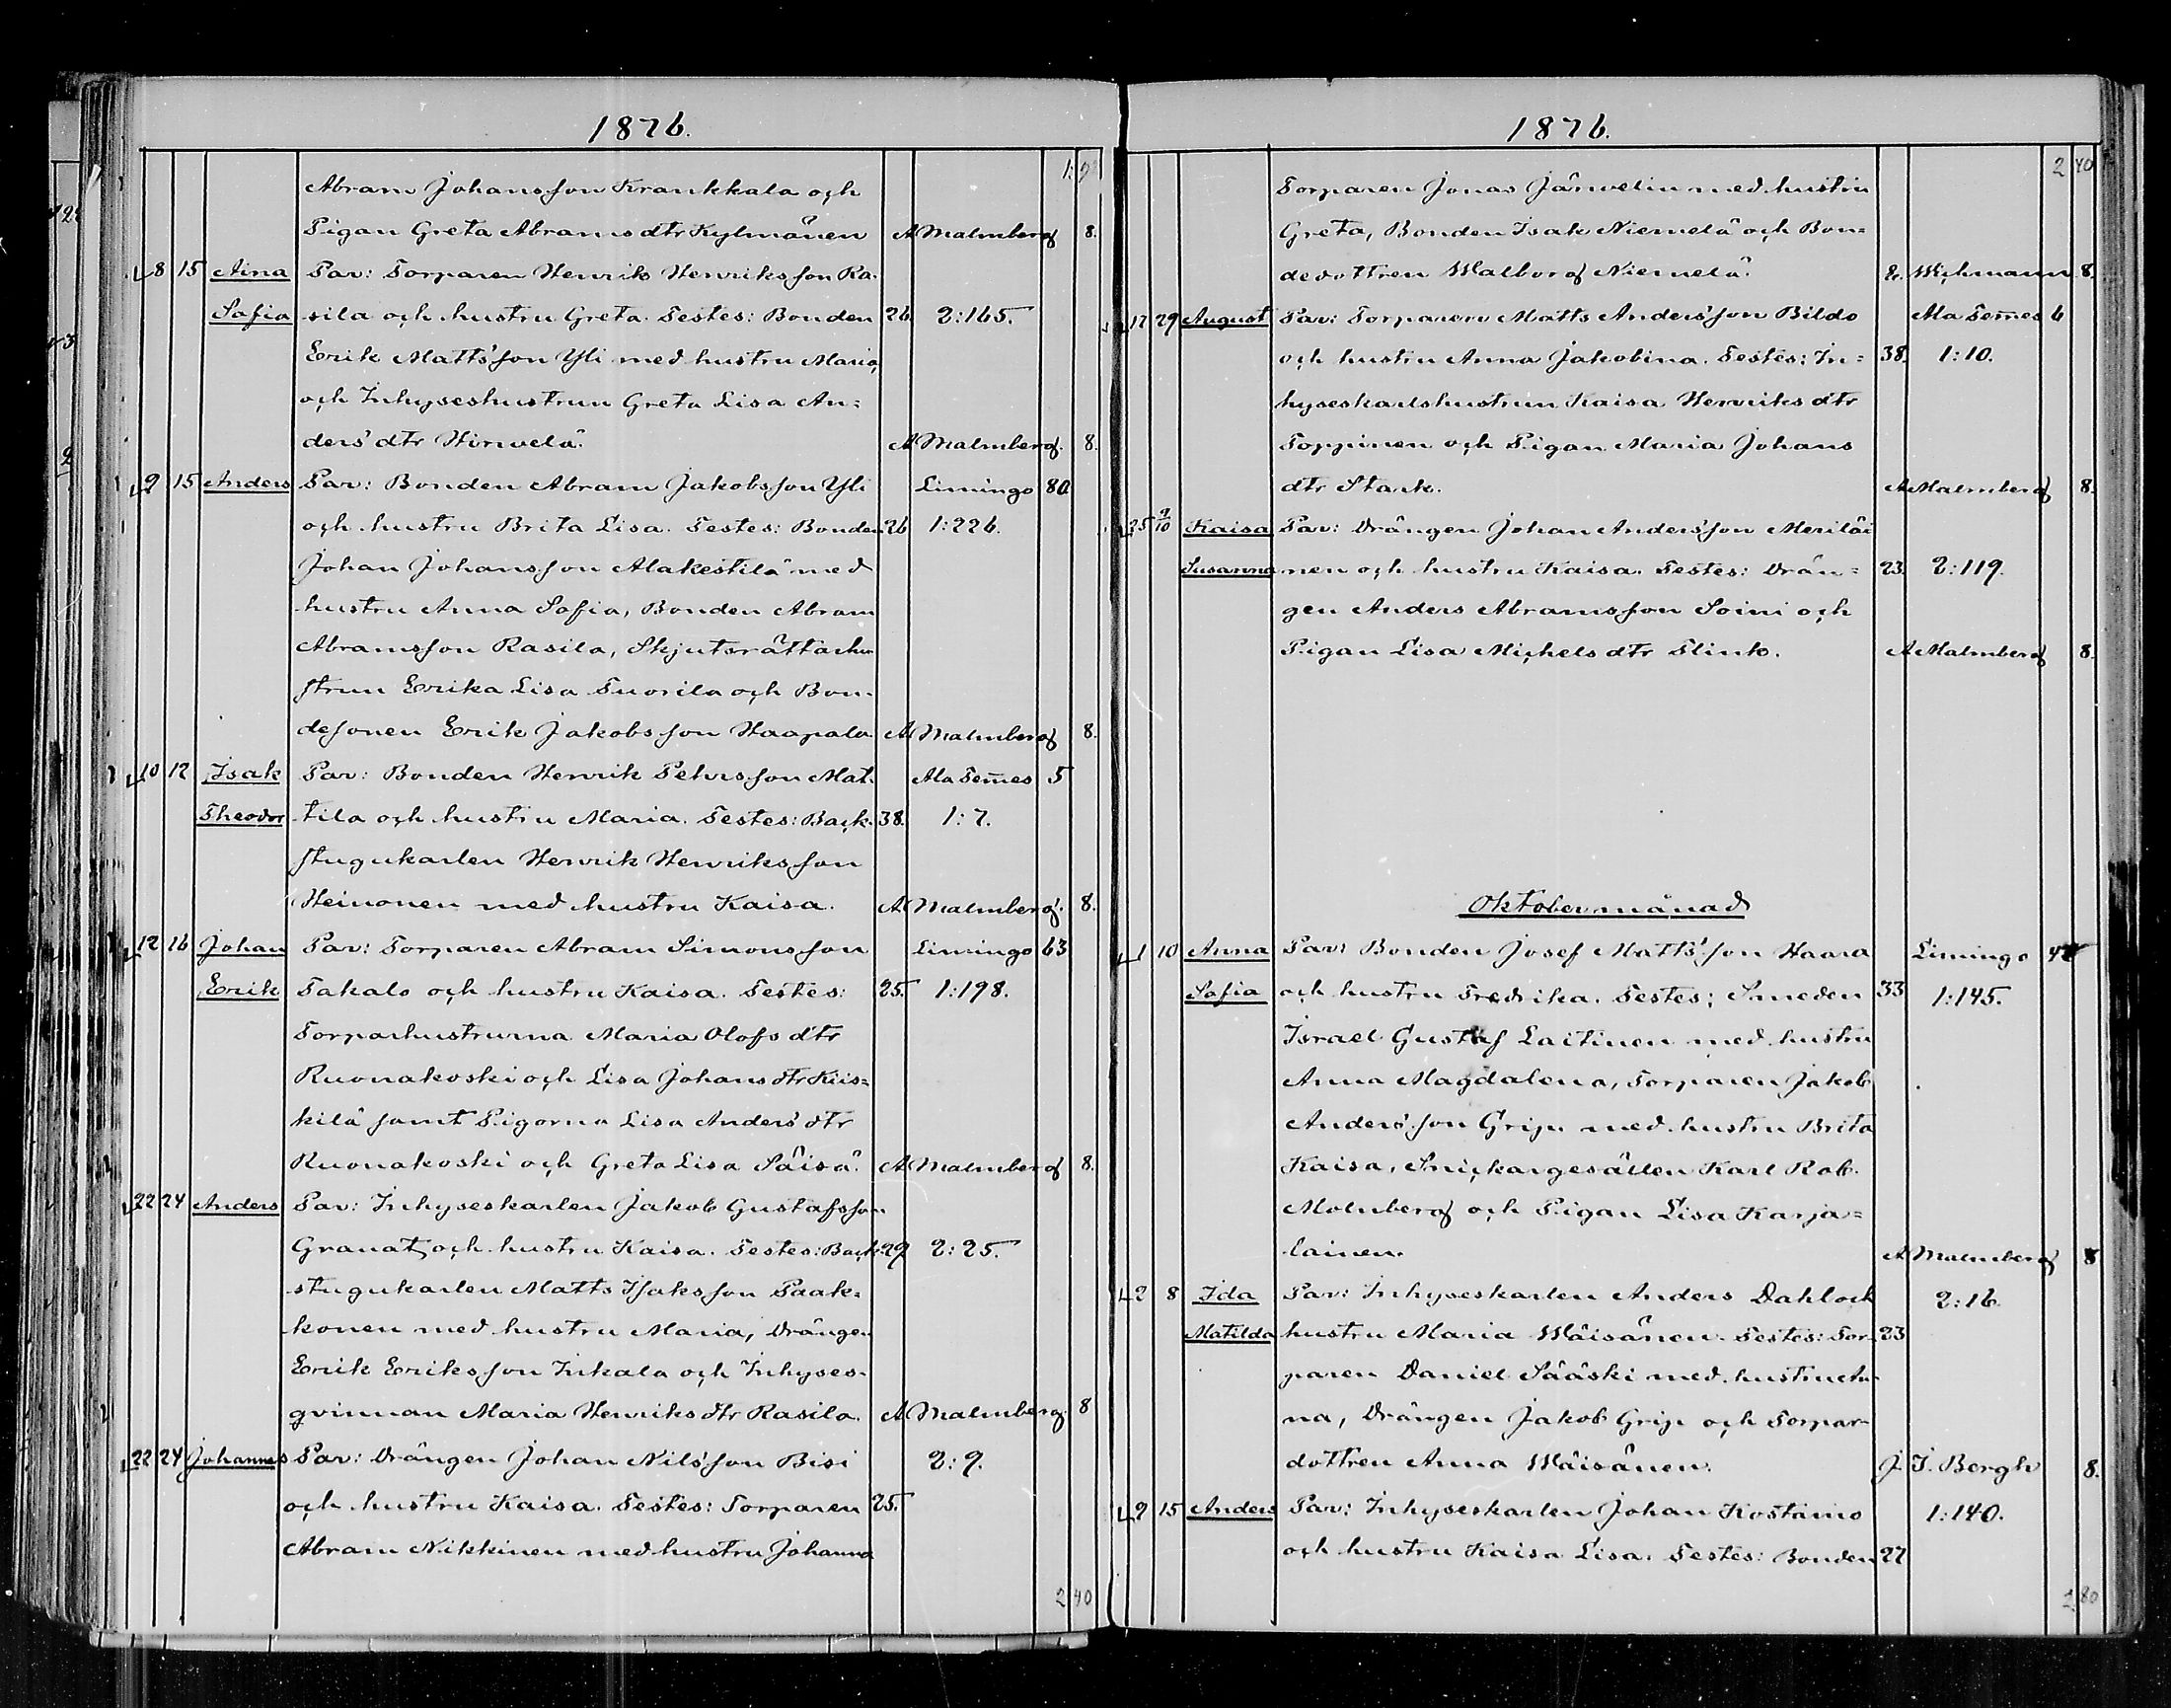 1876.
1:92
Abram Johansson Krankkala och
Pigan Greta Abramsdtr Kylmänen A Malmberg 8.
8 15 Aina Par: Torparen Henrik Henriksson Ra-
Sofia sila och hustru Greta. Testes: Bonden 26. 2:165.
Erik Mattsson Yli med hustru Maria,
och Inhyseshustrun Greta Lisa An-
dersdtr Hirvelä. A Malmberg. 8.
9 15 Anders Par: Bonden Abram Jakobsson Yli Limingo 80
och hustru Brita Lisa. Testes: Bonden 26 1:226.
Johan Johansson Alakestilä med
hustru Anna Sofia, Bonden Abram
Abramsson Rasila, Skjutsrättarhu-
strun Erika Lisa Tuorila och Bon-
desonen Erik Jakobsson Haapala A Malmberg 8.
10 12 Isak Par: Bonden Henrik Pehrsson Mat- Ala Tem̄es 5
Theodor tila och hustru Maria. Testes: Back- 38. 1:7.
stugukarlen Henrik Henriksson
Heinonen med hustru Kaisa. A Malmberg. 8.
12 16 Johan Par: Torparen Abram Simonsson Limingo 63
Erik Takalo och hustru Kaisa. Testes: 25. 1:198.
Torparhustrurna Maria Olofsdtr
Ruonakoski och Lisa Johansdtr Kiis-
kilä samt Pigorna Lisa Andersdtr
Ruonakoski och Greta Lisa Säisä. A Malmberg 8.
22 24 Anders Par: Inhyseskarlen Jakob Gustafsson
Granat och hustru Kaisa. Testes: Back- 29 2:25.
stugukarlen Matts Isaksson Paak-
konen med hustru Maria, Drängen
Erik Eriksson Inkala och Inhyses-
qvinnan Maria Henriksdtr Rasila. A Malmberg. 8
22 24 Johannes Par: Drängen Johan Nilsson Bisi 2:9.
och hustru Kaisa. Testes: Torparen 25.
Abram Nikkinen med hustru Johanna
2 40
1876.
2 40
Torparen Jonas Järvelin med hustru
Greta, Bonden Isak Niemelä och Bon-
dedottren Walborg Niemelä. Wichmann 8.
17 29 August Par: Torparen Matts Andersson Bildo Ala Tem̄es 6
och hustru Anna Jakobina. Testes: In- 38. 1:10.
hyseskarlshustrun Kaisa Henriksdtr
Toppinen och Pigan Maria Johans
dtr Stark. A Malmberg 8.
25 9/10 Kaisa Par: Drängen Johan Andersson Meriläi
Susanna nen och hustru Kaisa. Testes: Drän- 23. 2:119.
gen Anders Abramsson Soini och
Pigan Lisa Michelsdtr Flink. A Malmberg 8.
Oktober månad
1 10 Anna Par: Bonden Josef Mattsson Haara Limingo
Sofia och hustru Fredrika. Testes: Smeden 33 1:145.
Israel Gustaf Laitinen med hustru
Anna Magdalena, Torparen Jakob
Andersson Grip med hustru Brita
Kaisa, Snickargesällen Karl Rob.
Molnberg och Pigan Lisa Karja-
lainen. A Malmberg 8
2 8 Ida Par: Inhyseskarlen Anders Dahl och 2:16.
Matilda hustru Maria Wäisänen. Testes: Tor- 23
paren Daniel Sääski med hustru An-
na, Drängen Jakob Grip och Torpar-
dottren Anna Wäisänen. J. I. Bergh 8.
9 15 Anders Par: Inhyseskarlen Johan Kostamo 1:140.
och hustru Kaisa Lisa. Testes: Bonden 27
2 80